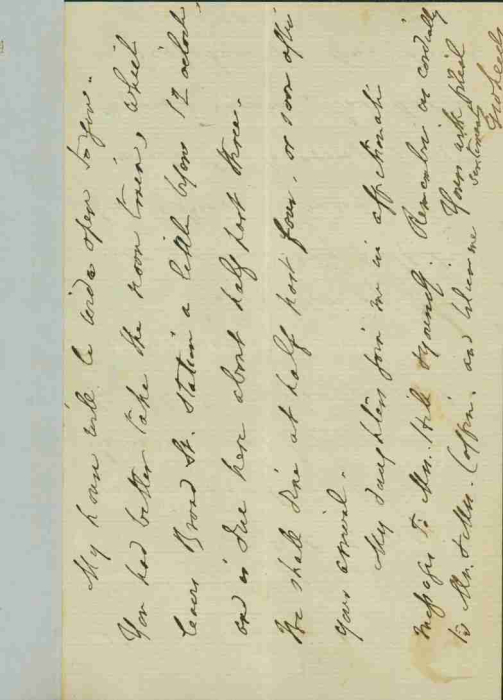 My house will be wide open to you.
You had better take the noon train, which
leaves Broad St. Station a little before 12 o'clock
and is due here about half past three.
We shall dine at half past four, or soon after
your arrival.
My daughters join me in affectionate
messages to Mrs. Hill & yourself. Remember us cordially
to Mr. & Mrs. Coffin. and believe me Yours with filial
sentiments